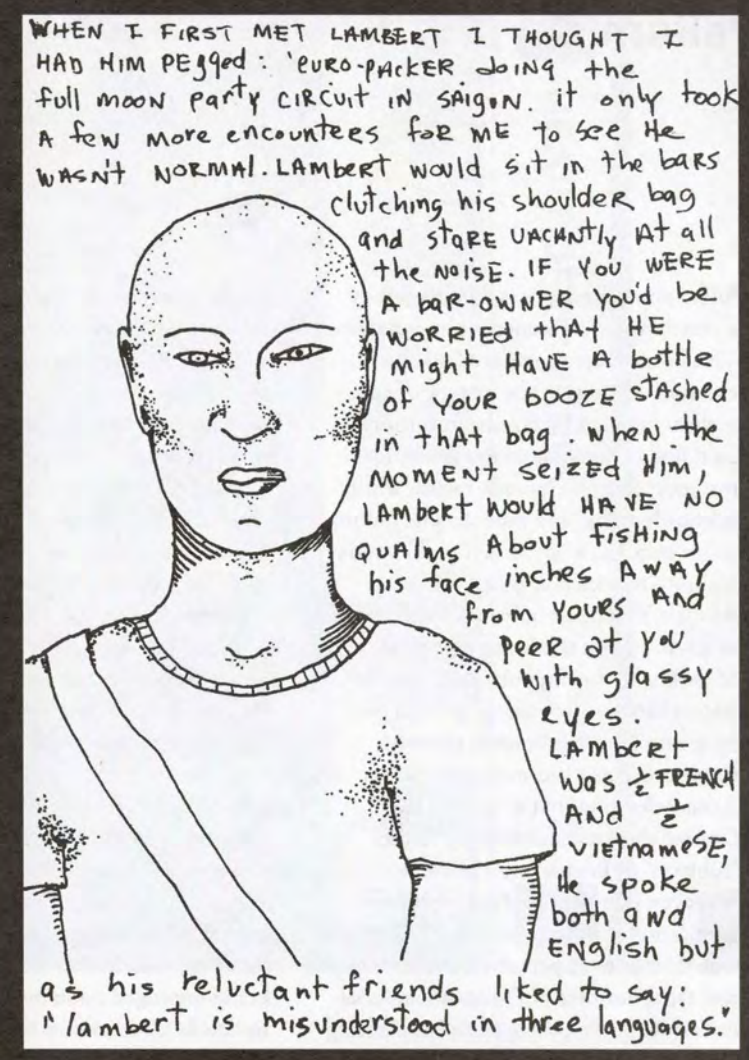 WHEN I FIRST MET LAMBERT I THOUGHT I
HAD HIM PEgged: 'EURO-PACKER doING the
full moon party CIRCUIT IN SAIGON. it only took
A few more encountees foR ME to See He
WASN't NORMAl. LAMBERT would sit in the baRS
clutching his shoulder bag
and staRE VACANtly At all
the NOISE. IF You WERE
A baR-OWNER you'd be
WORRIEd thAt HE
might HavE A bottle
of YOUR BOOZE stAshed
in thAt bag. when the
MOMENT SEIZED Him,
LAMBERT WOUld HAVE NO
QUAlms About fisHing
his face inches AWAY
from YOURS And
PEER at you
with glassy
eyes.
LAMBERt
was ½ FRENCH
AND ½
VIEtnamESE,
He spoke
both and
ENglish but
as his reluctant friends liked to say:
"lambert is misunderstood in three languages."